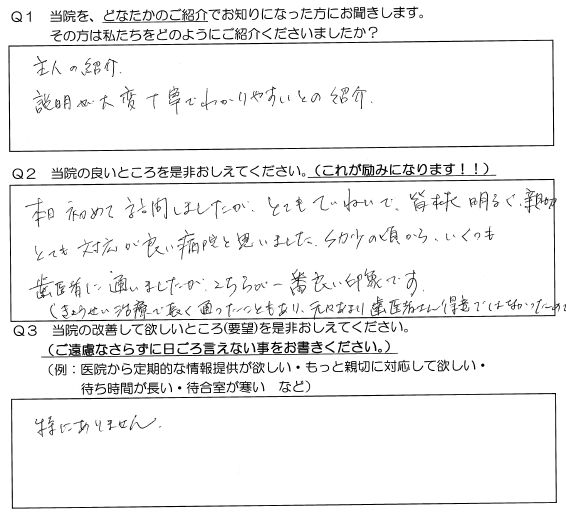 Q1 当院を、どなたかのご紹介でお知りになった方にお聞きします。
その方は私たちをどのようにご紹介くださいましたか？
主人の紹介.
説明が大変丁寧でわかりやすいとの紹介.
Q2 当院の良いところを是非おしえてください。(これが励みになります！！)
本日初めて訪問しましたが、とてもていねいで、皆様明るく、親切
とても対応が良い病院と思いました。幼少の頃から、いくつも
歯医者に通いましたが、こちらが一番良い印象です.
(きょうせい治療で長く通ったこともあり、元々あまり歯医者さん得意ではなかったので
Q3 当院の改善して欲しいところ(要望)を是非おしえてください。
(ご遠慮なさらずに日ごろ言えない事をお書きください。)
(例：医院から定期的な情報提供が欲しい・もっと親切に対応して欲しい・
待ち時間が長い・待合室が寒い など)
特にありません.